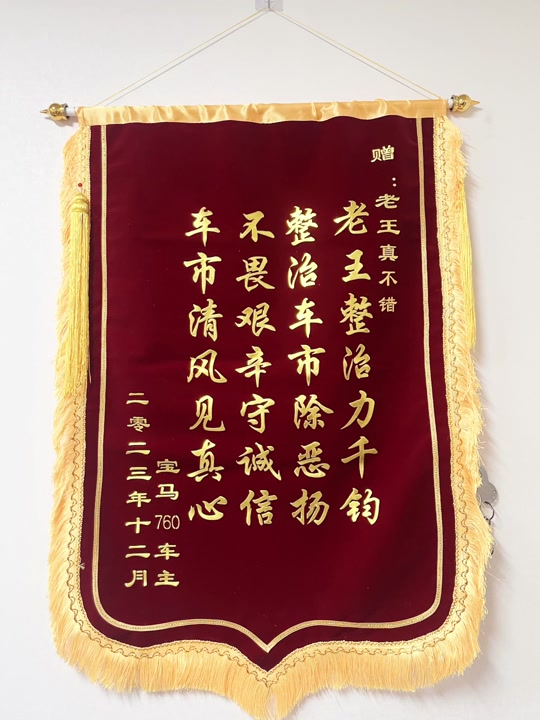 赠：老王真不错
老王整治力千钧
整治车市除恶扬
不畏艰辛守诚信
车市清风见真心
宝马760车主
二零二三年十二月